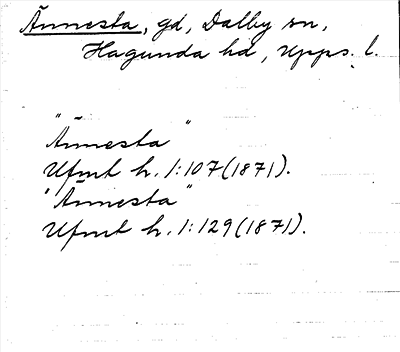 Ännesta, gd, Dalby sn,
Hagunda hd, Upps. l.
"Ännesta"
Ufmt h. 1:107 (1871).
"Ännesta"
Ufmt h. 1:129 (1871).